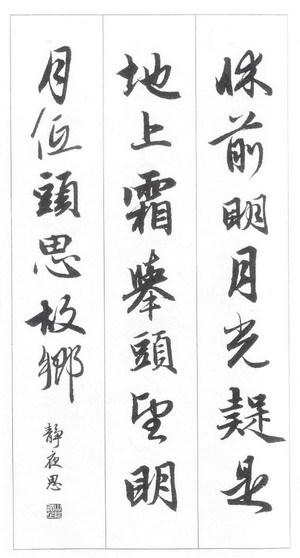 床前明月光疑是
地上霜舉頭望明
月低頭思故鄉
靜夜思